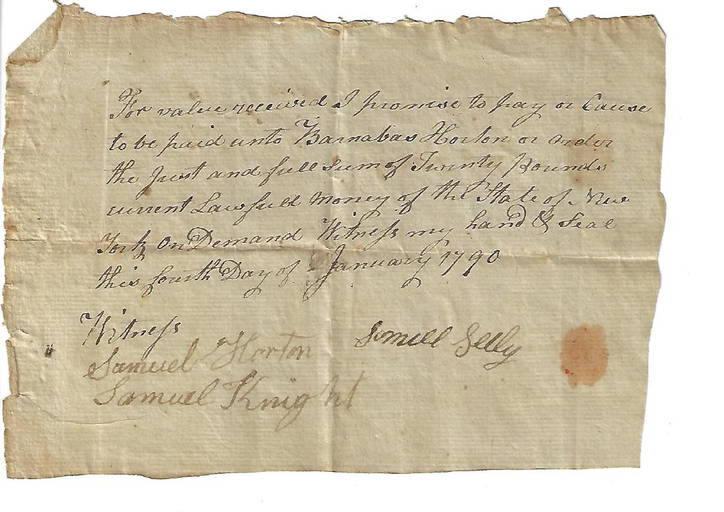 For value received I promise to pay or Cause
to be paid unto Barnabas Horton or order
the Just and full sum of Twenty Pounds
current Lawfull money of the State of New
York On Demand Witness my hand & Seal
this fourth Day of January 1790
Witness
Samuel Horton
Samuel Knight
Samuell Seely